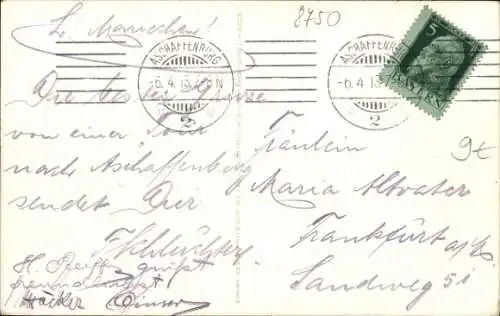 8750
L. Mariechen!
ASCHAFFENBURG
-6.4.13
2
ASCHAFFENBURG
-6.4.13
2
5
BAYERN
Die besten Grüsse
von einer Tour
nach Aschaffenburg
sendet Dir
Fräulein
Maria Altvater
Frankfurt a/M
Sandweg 51
9€
H. Pfeiffer grüßt
freundlichst